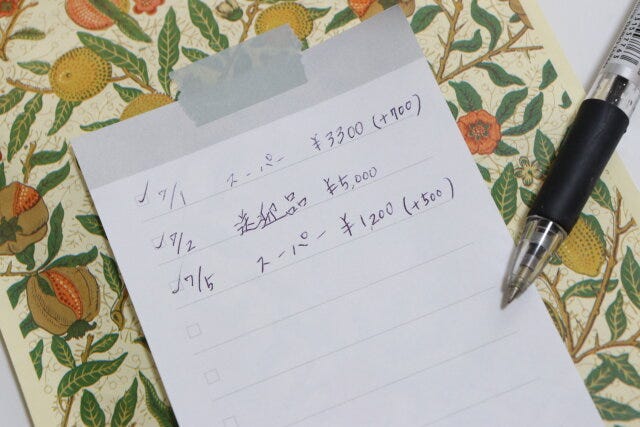 7/1 スーパー ¥3300 (+700)
7/2 化粧品 ¥5,000
7/5 スーパー ¥1,200 (+500)